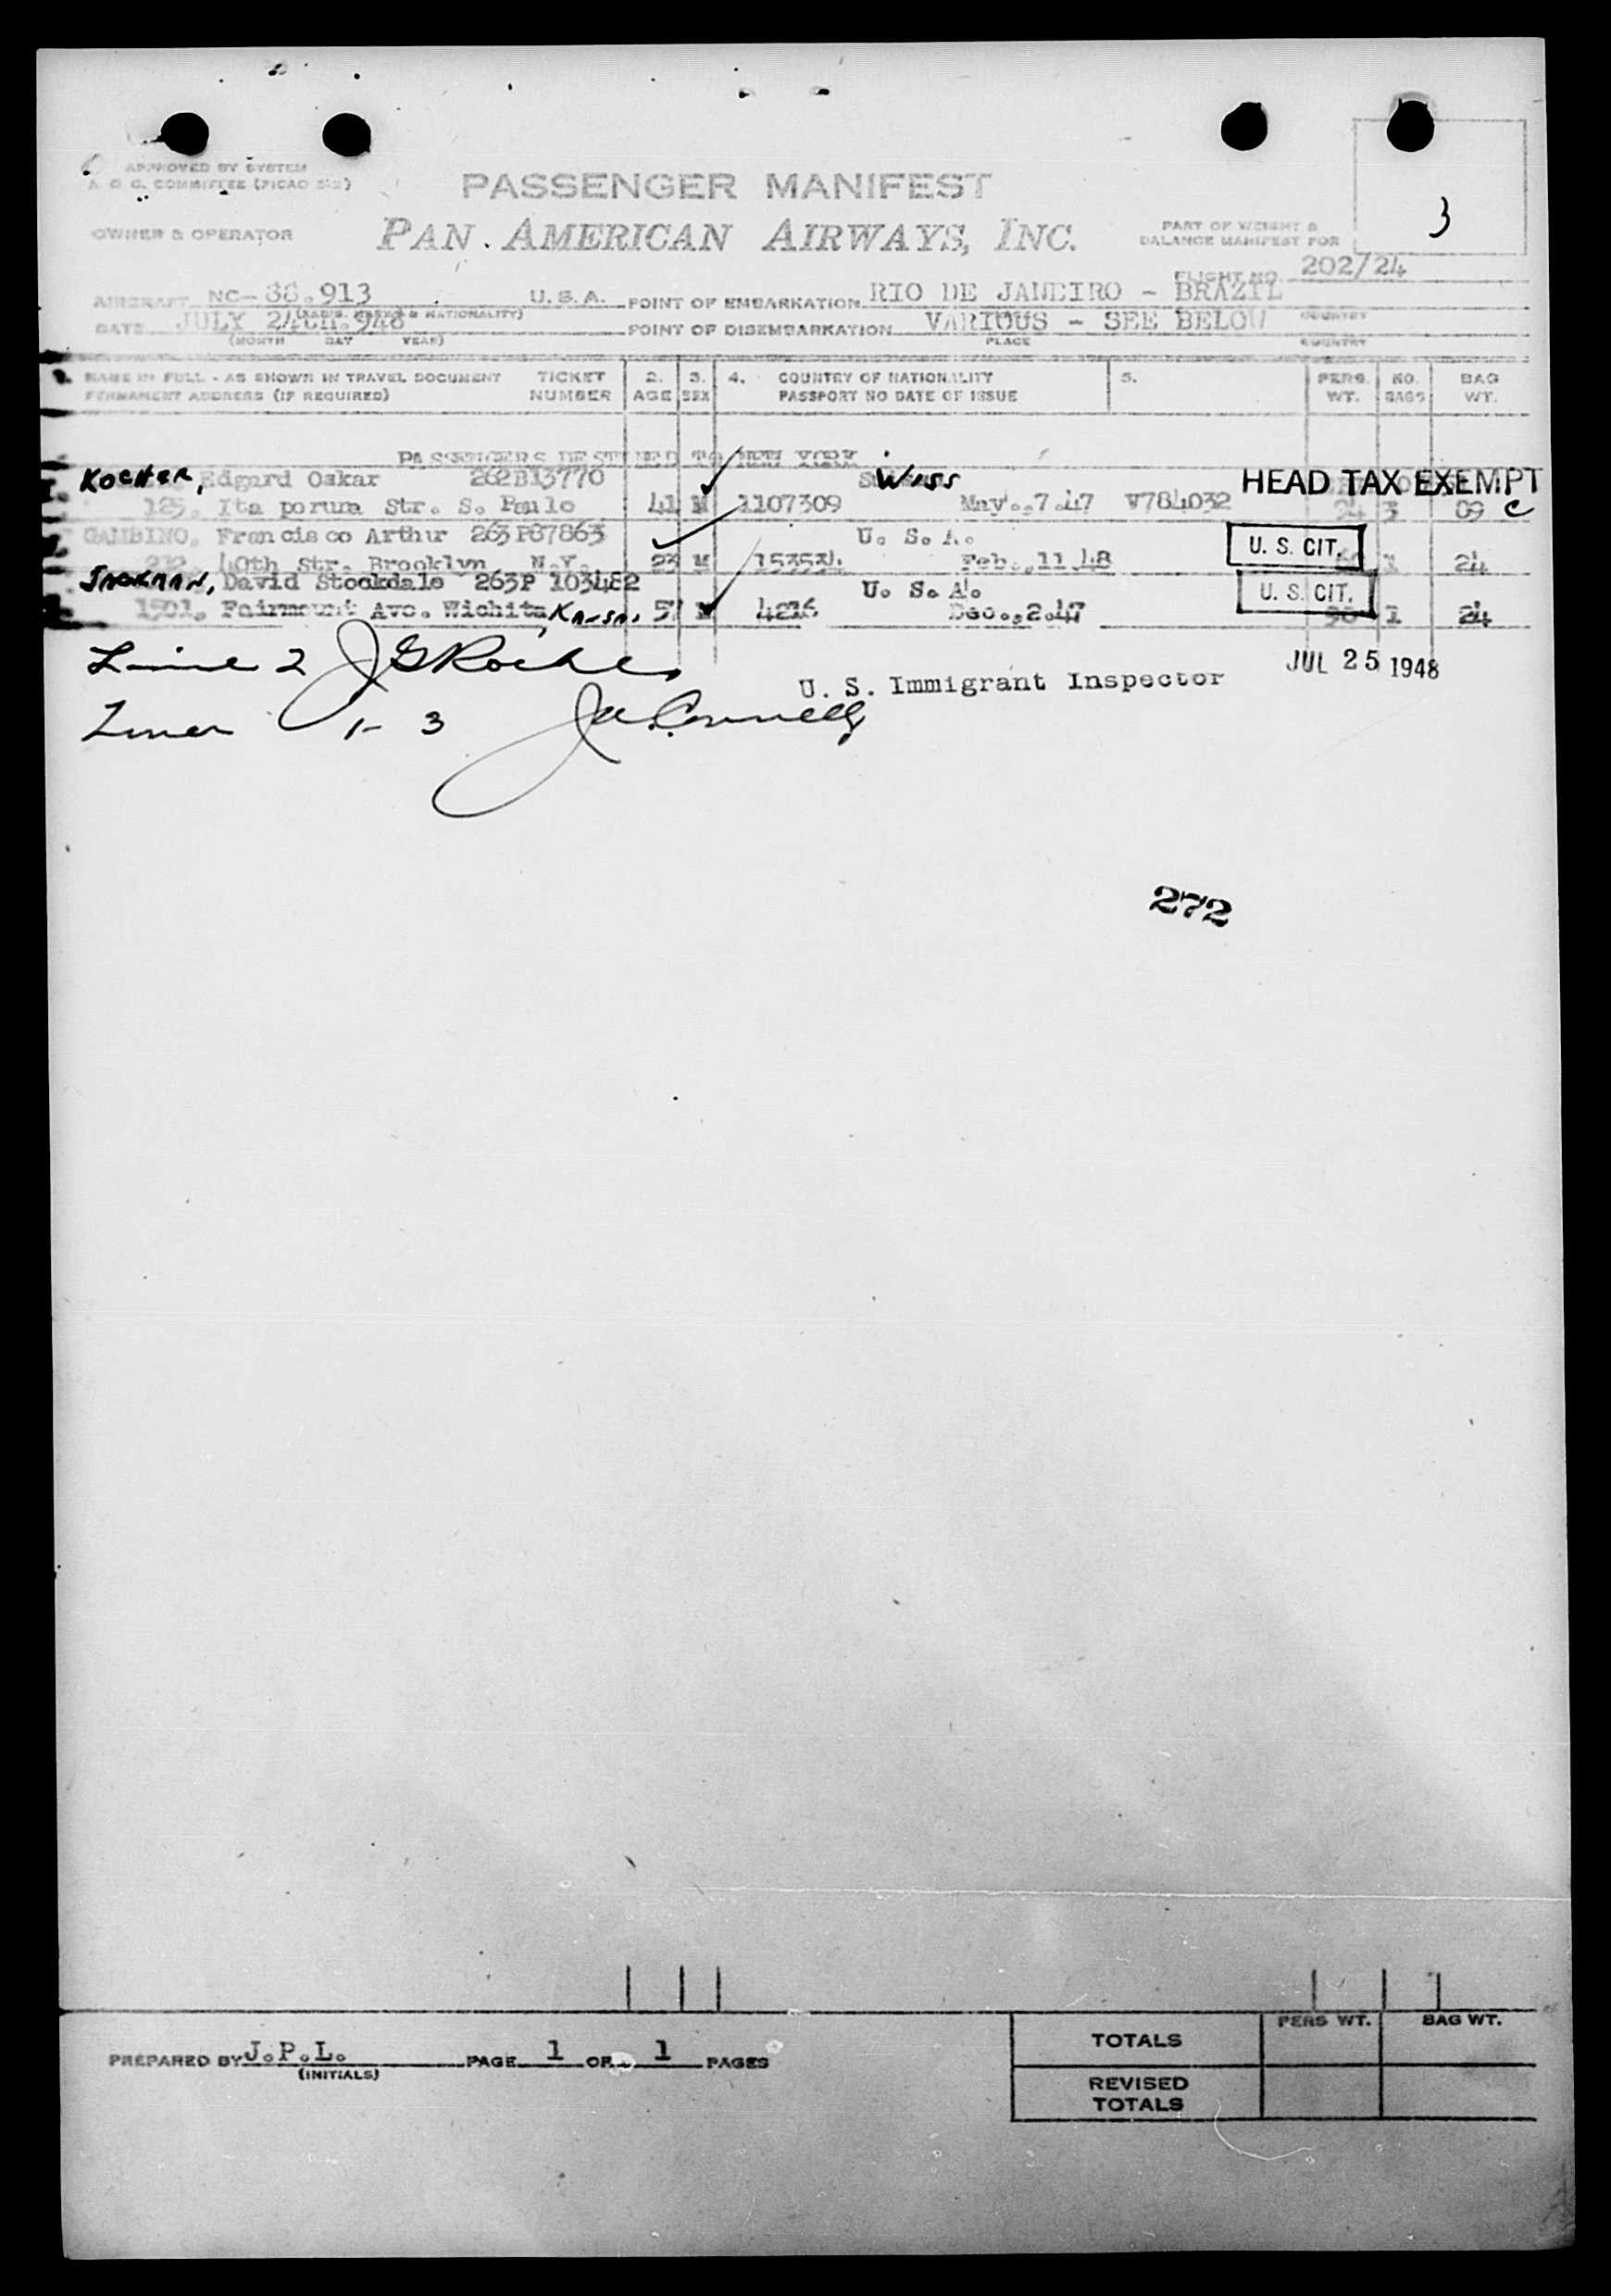 APPROVED BY SYSTEM
A. O. C. COMMITTEE (PICAO
PASSENGER MANIFEST
3
OWNER & OPERATOR
PAN AMERICAN AIRWAYS, INC.
PART OF WEIGHT &
BALANCE MANIFEST FOR
FLIGHT NO. 202/24
AIRCRAFT NC-88.913 U. S. A. POINT OF EMBARKATION RIO DE JANEIRO - BRAZIL
MARKS & NATIONALITY) COUNTRY
DATE JULY 24th.948 POINT OF DISEMBARKATION VARIOUS - SEE BELOW
(MONTH DAY YEAR) PLACE COUNTRY
NAME IN FULL - AS SHOWN IN TRAVEL DOCUMENT TICKET 2. 3. 4. COUNTRY OF NATIONALITY 5. PERS. NO. BAG
PERMANENT ADDRESS (IF REQUIRED) NUMBER AGE SEX PASSPORT NO DATE OF ISSUE WT. BAGS WT.
PASSENGERS DESTINED TO NEW YORK
KOCHER, Edgard Oskar 262B13770 SWISS HEAD TAX EXEMPT
125. Ita porum Str. S. Paulo 41 M 1107309 May.,7.47 V784032 3 09 C
GAMBINO, Francisco Arthur 263P87863 U. S. A. U. S. CIT.
212. 40th Str. Brooklyn N.Y. 23 M 153534 Feb.,11.48 1 24
JACKMAN, David Stockdale 263P 103482 U. S. A. U. S. CIT.
1501. Fairmount Ave. Wichita, Kansa. 57 M 4216 Dec.,2.47 90 1 24
Line 2 JGRoche
U. S. Immigrant Inspector JUL 25 1948
Lines 1-3 JA.Connelly
272
PERS WT. BAG WT.
TOTALS
PREPARED BY J.P.L. PAGE 1 OF 1 PAGES
(INITIALS)
REVISED
TOTALS